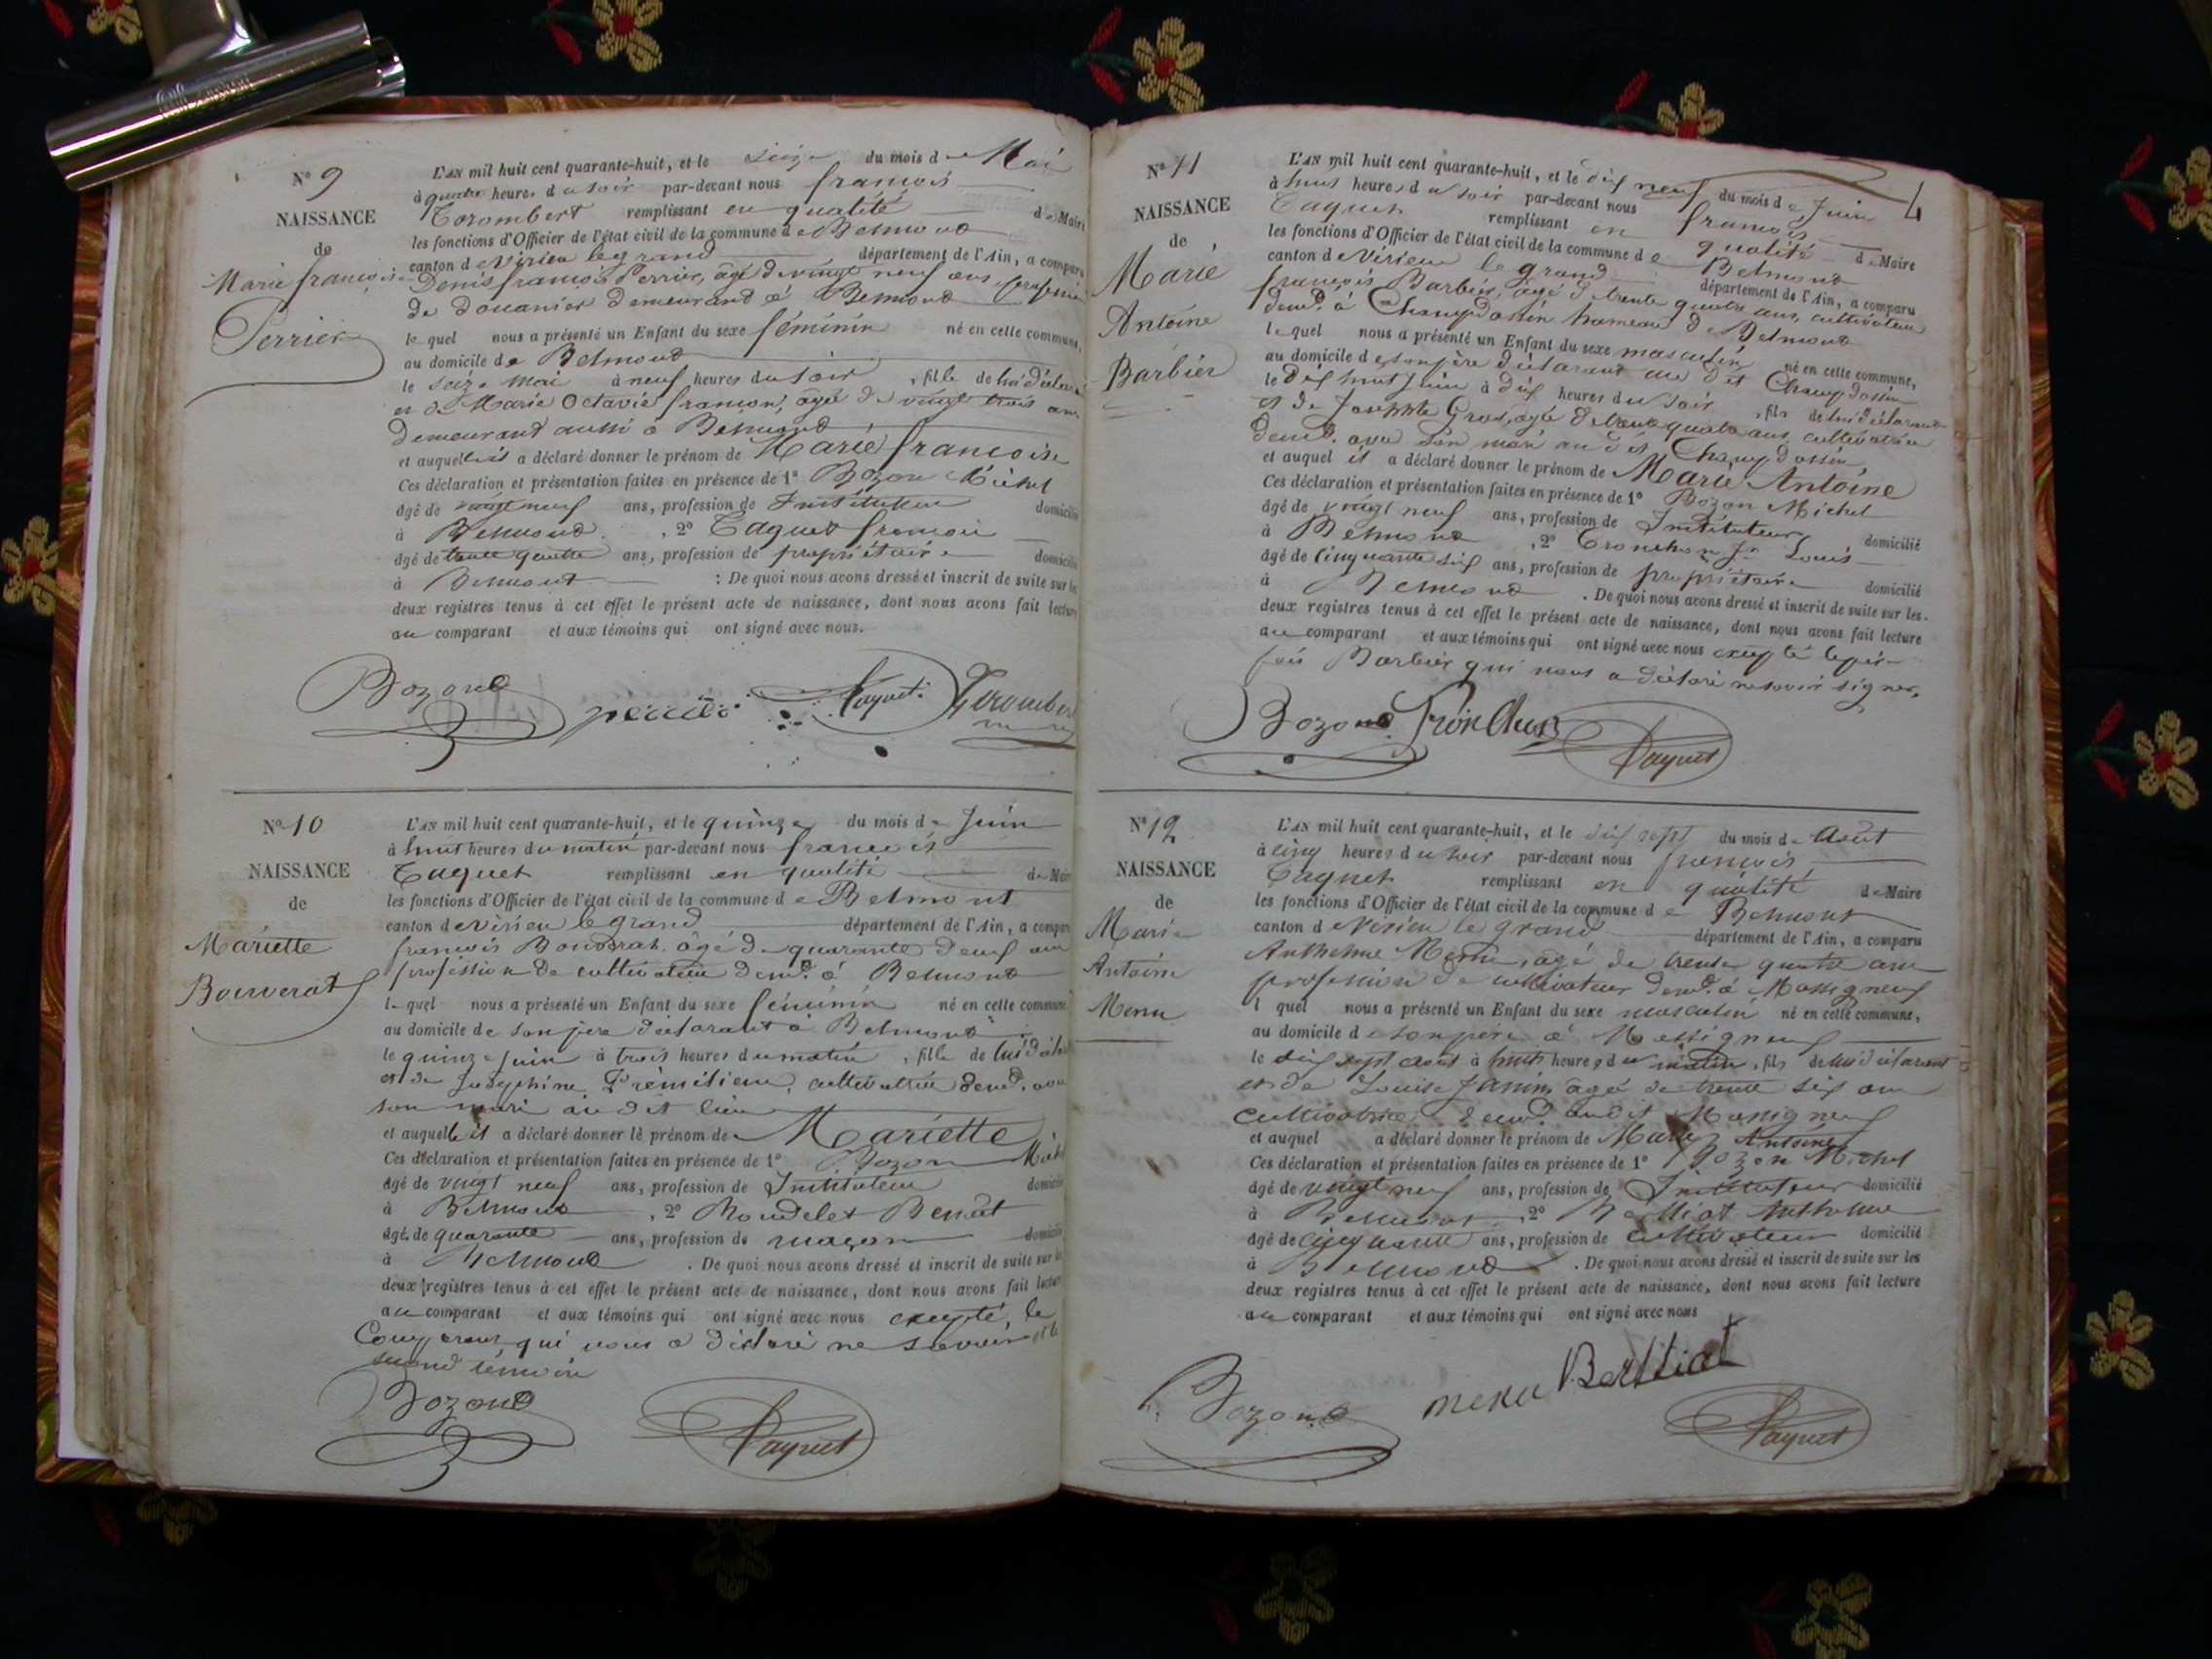 N° 9
NAISSANCE
de
Marie françoise
Perrier
L'AN mil huit cent quarante-huit, et le seize du mois de Mai
à quatre heures du soir par-devant nous françois
Torombert remplissant en qualité de Maire
les fonctions d'Officier de l'état civil de la commune de Belmont
canton de Virieu le grand département de l'Ain, a comparu
Denis françois Perrier, âgé de vingt neuf ans, profession
de Douanier demeurand à Belmond
lequel nous a présenté un Enfant du sexe féminin né en cette commune,
au domicile de Belmond
le seize Mai à neuf heures du soir, fille de lui déclarant
et de Marie Octavie françon, agée de vingt trois ans
demeurant aussi à Belmond
et auquelle il a déclaré donner le prénom de Marie françoise
Ces déclaration et présentation faites en présence de 1° Bozon Michel
âgé de vingt neuf ans, profession de Instituteur domicilié
à Belmond, 2° Taquet françois
âgé de trente quatre ans, profession de propriétaire domicilié
à Belmont : De quoi nous avons dressé et inscrit de suite sur les
deux registres tenus à cet effet le présent acte de naissance, dont nous avons fait lecture
au comparant et aux témoins qui ont signé avec nous.
Bozond perrier Taquet Torombert
N° 10
NAISSANCE
de
Mariette
Bouverat
L'AN mil huit cent quarante-huit, et le quinze du mois de Juin
à huit heures du matin par-devant nous françois
Taquet remplissant en qualité de Maire
les fonctions d'Officier de l'état civil de la commune de Belmont
canton de Virieu le grand département de l'Ain, a comparu
françois Bouverat âgé de quarante deux ans
profession de cultivateur demt. à Belmond
lequel nous a présenté un Enfant du sexe féminin né en cette commune
au domicile de son père déclarant à Belmond
le quinze juin à trois heures du matin, fille de lui déclarant
et de Josephine Prémilieu, cultivatrice demt. avec
son mari au dit lieu
et auquelle il a déclaré donner le prénom de Mariette
Ces déclaration et présentation faites en présence de 1° Bozon Michel
âgé de vingt neuf ans, profession de Instituteur domicilié
à Belmond, 2° Benoit
âgé de quarante ans, profession de maçon domicilié
à Belmond. De quoi nous avons dressé et inscrit de suite sur les
deux registres tenus à cet effet le présent acte de naissance, dont nous avons fait lecture
au comparant et aux témoins qui ont signé avec nous excepté le
Comparant qui nous a déclaré ne savoir et le
second témoin
Bozond Taquet
4
N° 11
NAISSANCE
de
Marie
Antoine
Barbier
L'AN mil huit cent quarante-huit, et le dix neuf du mois de Juin
à huit heures du soir par-devant nous françois
Taquet remplissant en qualité de Maire
les fonctions d'Officier de l'état civil de la commune de Belmond
canton de Virieu le grand département de l'Ain, a comparu
françois Barbier, âgé de trente quatre ans, cultivateur
demt. à Champdossin hameau de Belmond
lequel nous a présenté un Enfant du sexe masculin né en cette commune,
au domicile de son père déclarant au dit Champdossin
le Dix huit Juin à dix heures du soir, fils de lui déclarant
et de Josephte Gros, agée de trente quatre ans, cultivatrice
demt. avec son mari au dit Champdossin
et auquel il a déclaré donner le prénom de Marie Antoine
Ces déclaration et présentation faites en présence de 1° Bozon Michel
âgé de vingt neuf ans, profession de Instituteur domicilié
à Belmond, 2° Tronchon Jn Louis
âgé de cinquante six ans, profession de propriétaire domicilié
à Belmond. De quoi nous avons dressé et inscrit de suite sur les
deux registres tenus à cet effet le présent acte de naissance, dont nous avons fait lecture
au comparant et aux témoins qui ont signé avec nous excepté le
Barbier qui nous a déclaré ne savoir signer.
Bozond Tronchon Taquet
N° 12
NAISSANCE
de
Marie
Antoine
Menu
L'AN mil huit cent quarante-huit, et le dix sept du mois de Août
à cinq heures du soir par-devant nous françois
Taquet remplissant en qualité de Maire
les fonctions d'Officier de l'état civil de la commune de Belmont
canton de Virieu le grand département de l'Ain, a comparu
Anthelme Menu, âgé de trente quatre ans
profession de cultivateur demt. à Massigneux
lquel nous a présenté un Enfant du sexe masculin né en cette commune,
au domicile de son père à Massigneux
le dix sept août à huit heures du matin, fils de lui déclarant
et de Louise Janin, agée de trente six ans
cultivatrice demt. audit Massigneux
et auquel a déclaré donner le prénom de Marie Antoine
Ces déclaration et présentation faites en présence de 1° Bozon Michel
âgé de vingt neuf ans, profession de Instituteur domicilié
à Belmont, 2° Berlliat Anthelme
âgé de cinquante ans, profession de cultivateur domicilié
à Belmond. De quoi nous avons dressé et inscrit de suite sur les
deux registres tenus à cet effet le présent acte de naissance, dont nous avons fait lecture
au comparant et aux témoins qui ont signé avec nous
Bozond menu Berlliat Taquet